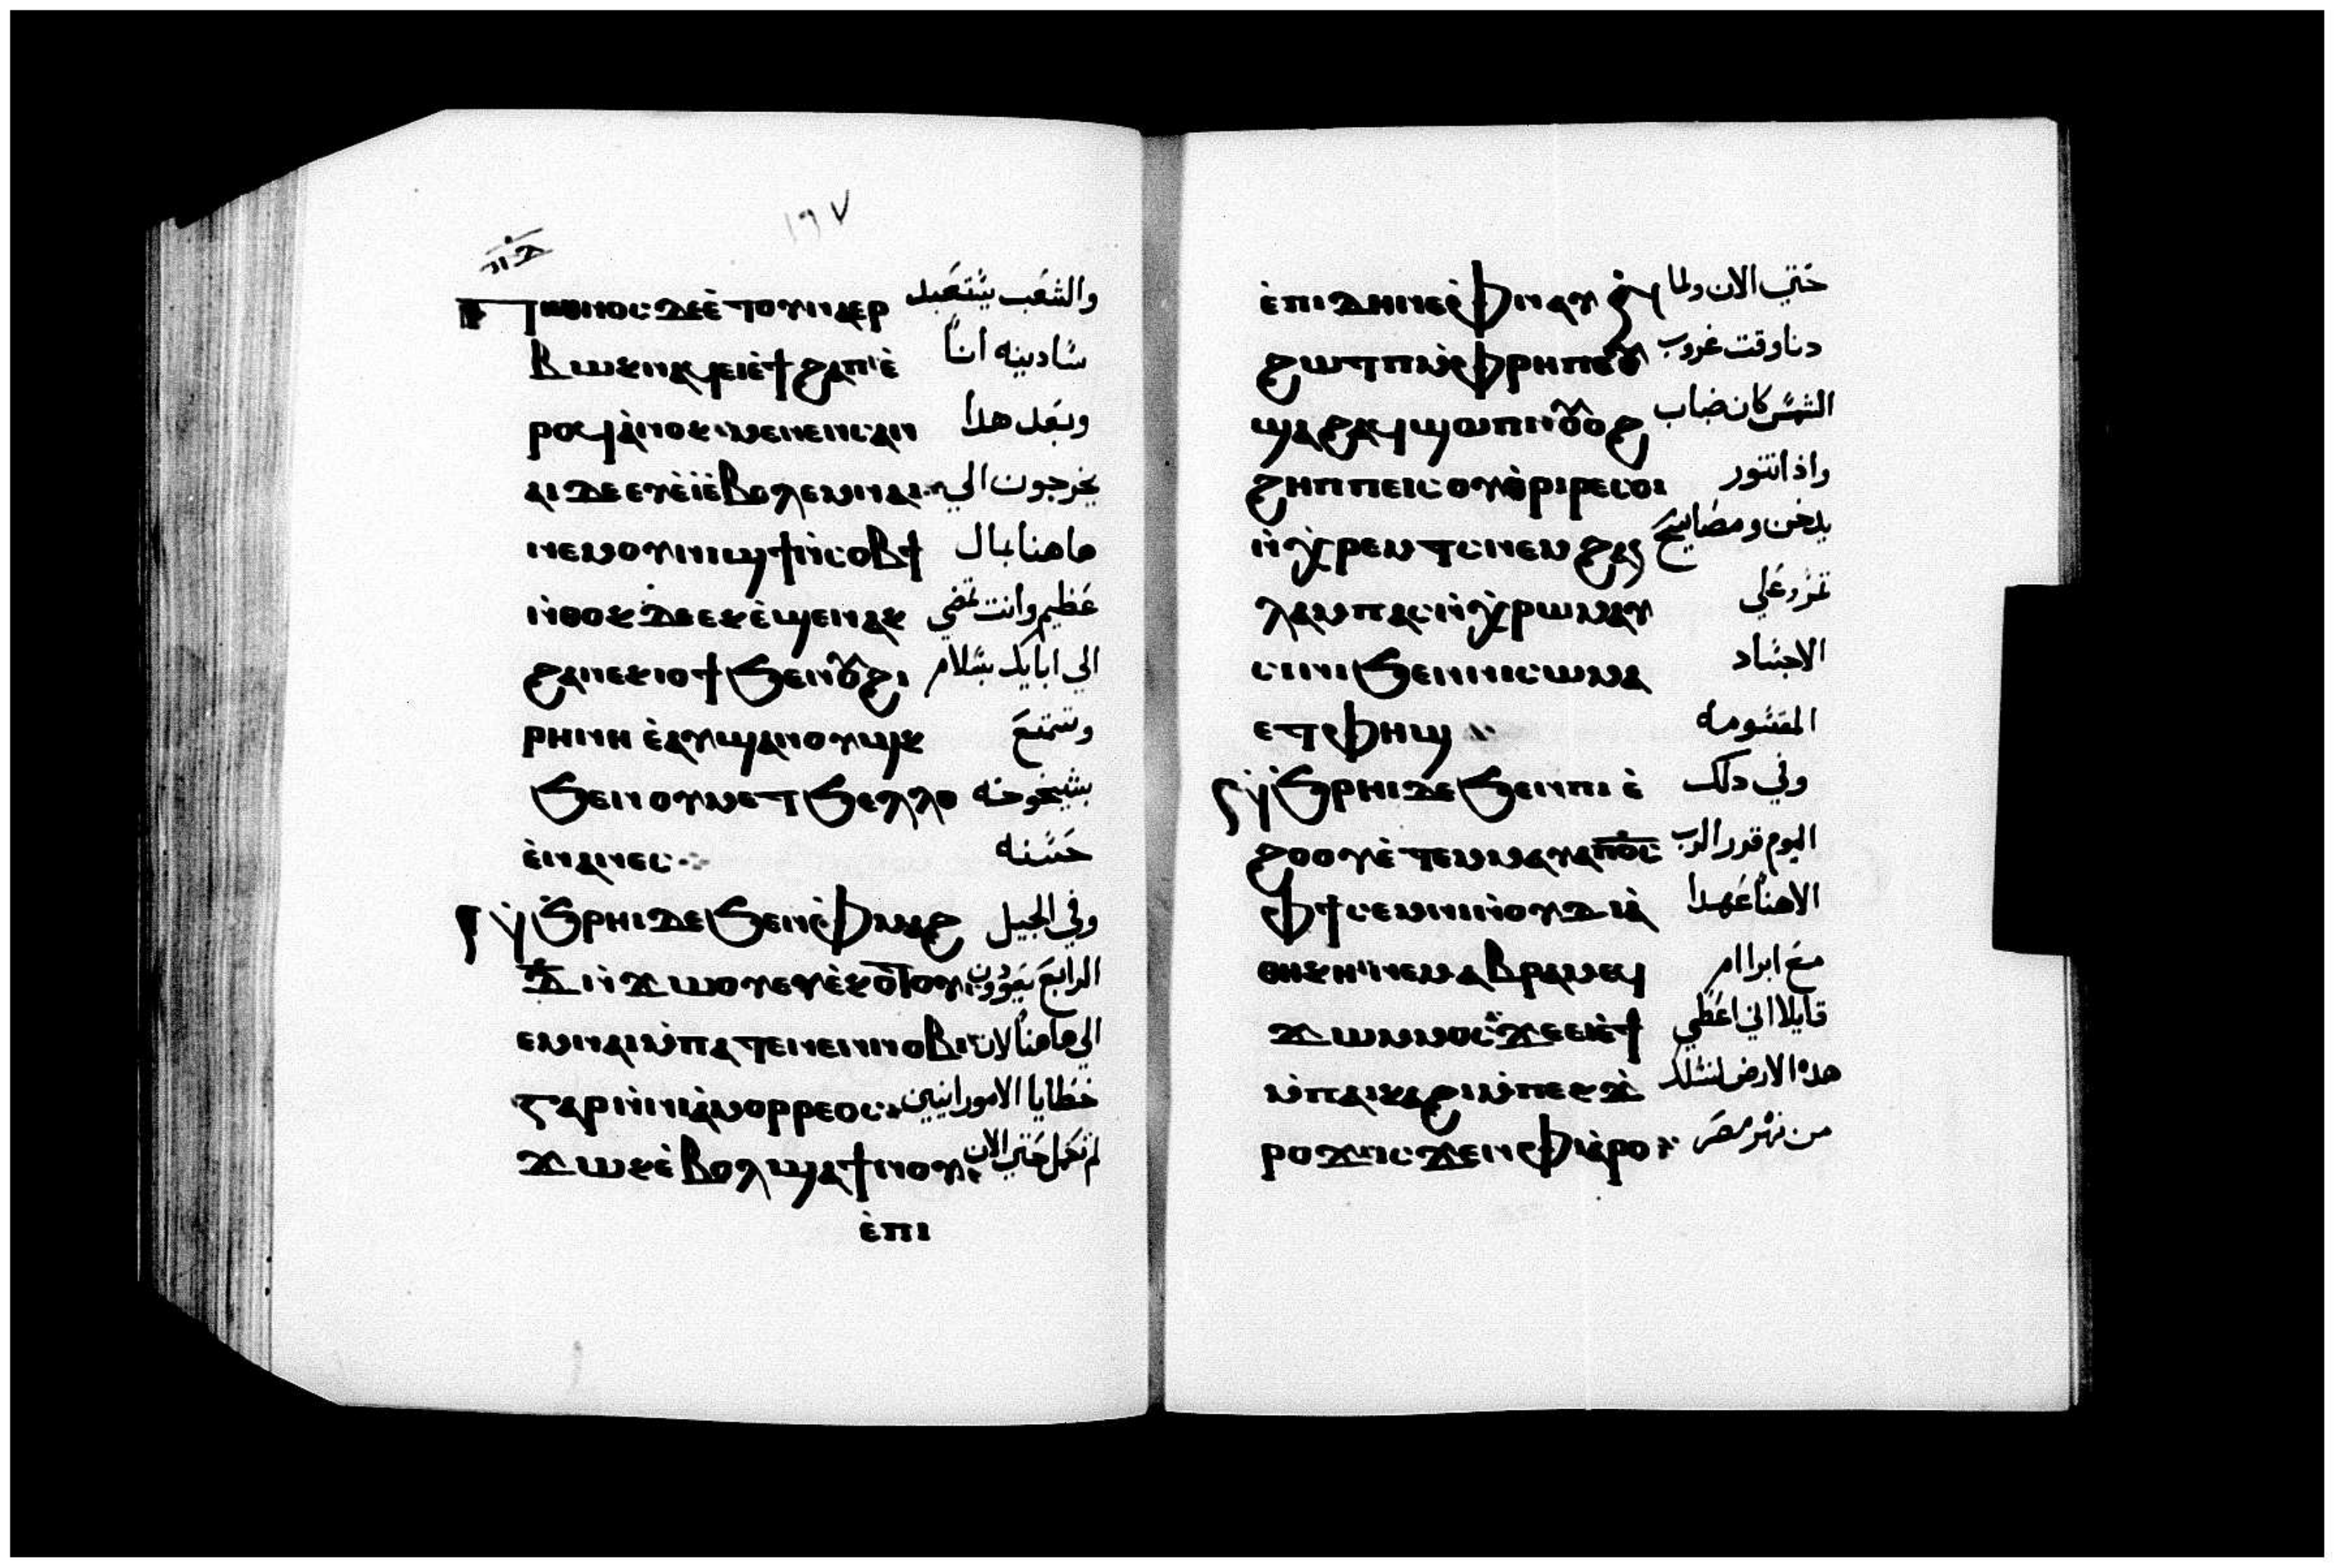 ١٦٧
Ⲡⲓϣⲗⲟⲗ ⲇⲉ ⲉ̀ⲧⲟⲩⲛⲁⲉⲣ والشعب يستعبد
ⲃⲱⲕ ⲛⲁϥ ⲉⲓⲉ̀ϯϩⲁⲡ ⲉ̀ سادينه انا
ⲣⲟϥ ⲁ̀ⲛⲟⲕ ⲙⲉⲛⲉⲛⲥⲁⲛ وبعد هدا
ⲁⲓ ⲇⲉ ⲉⲩⲉ̀ⲓ̀ ⲉ̀ⲃⲟⲗ ⲉⲙⲛⲁⲓ يخرجون الي
ⲛⲉⲙ ⲟⲩⲛⲓϣϯ ⲛ̀ⲥⲟⲃϯ هاهنا بمال
ⲛ̀ⲑⲟⲕ ⲇⲉ ⲉⲕⲉ̀ϣⲉⲛⲁⲕ عظيم وانت تمضي
ϩⲁ ⲛⲉⲕⲓⲟϯ ϧⲉⲛ ⲟⲩϩⲓ الي ابايك بسلام
ⲣⲏⲛⲏ ⲉ̀ⲁⲩϣⲁⲛⲟⲩϣⲕ وتتمتع
ϧⲉⲛ ⲟⲩⲙⲉⲧϧⲉⲗⲗⲟ بشيخوخه
ⲉ̀ⲛⲁⲛⲉⲥ حسنه
ⲛ̀ϧⲣⲏⲓ ⲇⲉ ϧⲉⲛ ⲫ̀ⲙⲁϩ وفي الجيل
ⲇ̅ ⲛ̀ϫⲱⲟⲩ ⲉⲩⲉ̀ⲕⲟⲧⲟⲩ الرابع يعودون
ⲉⲙⲛⲁⲓ ⲙ̀ⲡⲁⲧⲉ ⲛⲉⲛⲛⲟⲃⲓ الي هاهنا لان
ⲅⲁⲣ ⲛ̀ⲛⲓⲁ̀ⲙⲟⲣⲣⲉⲟⲥ خطايا الامورانيين
ϫⲱⲕ ⲉ̀ⲃⲟⲗ ϣⲁ ϯⲛⲟⲩ لم تكمل حتي الان
ⲉ̀ⲡⲓ
ⲉ̀ⲡⲓⲇⲏ ⲛⲉ ⲫ̀ⲛⲁⲩ ⲛ̀ حتي الان ولما
ϩⲱⲧⲡ ⲙ̀ⲫⲣⲏ ⲡⲉ ⲟⲩ دنا وقت غروب
ϣⲁϩ ⲁϥϣⲱⲡⲓ ⲟⲩⲟϩ الشمس كان ضباب
ϩⲏⲡⲡⲉ ⲓⲥ ⲟⲩⲑ̀ⲣⲓⲣ ⲉϥⲟⲓ واذا تنور
ⲛ̀ⲭ̀ⲣⲉⲙⲧⲥ ⲛⲉⲙ ϩⲁⲛ يدخن ومصابيح
ⲗⲁⲙⲡⲁⲥ ⲛ̀ⲭ̀ⲣⲱⲙ ⲁⲩ تمر وعلي
ⲥⲓⲛⲓ ϧⲉⲛ ⲛⲓⲥⲱⲙⲁ الاجساد
ⲉⲧⲫⲏϣ المقسومه
ⲛ̀ϧⲣⲏⲓ ⲇⲉ ϧⲉⲛ ⲡⲓⲉ̀ وفي دلك
ϩⲟⲟⲩ ⲉ̀ⲧⲉⲙⲙⲁⲩ ⲁ ⲡ̅ⲟ̅ⲥ̅ اليوم قرر الرب
ⲫϯ ⲥⲉⲙⲛⲓ ⲛ̀ⲟⲩⲇⲓⲁ̀ الاهنا عهدا
ⲑⲏⲕⲏ ⲛⲉⲙ ⲁⲃⲣⲁⲙ ⲉϥ مع ابراام
ϫⲱⲙⲙⲟⲥ ϫⲉ ⲉⲓⲉ̀ϯ قايلا اني اعطي
ⲙ̀ⲡⲁⲓⲕⲁϩⲓ ⲙ̀ⲡⲉⲕϫ̀ هده الارض لنسلك
ⲣⲟϫ ⲓⲥϫⲉⲛ ⲫⲓⲁ̀ⲣⲟ من نهر مصر